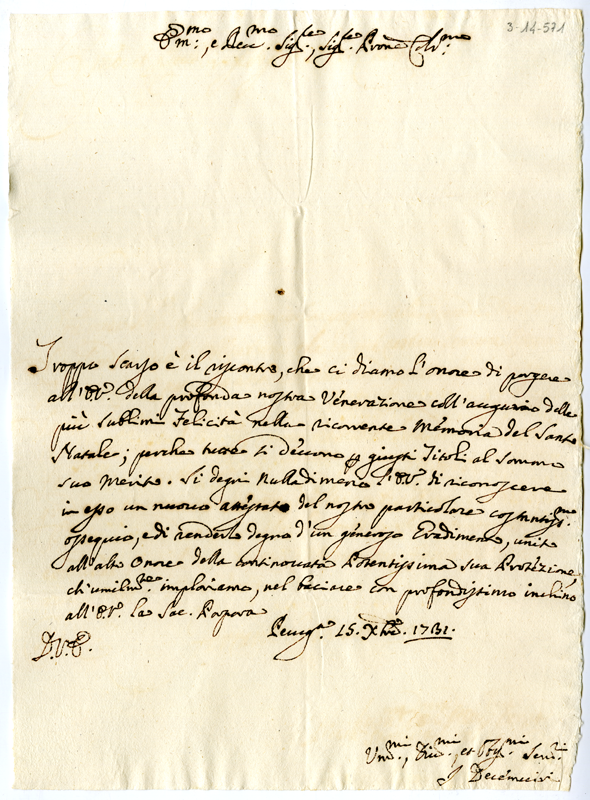 3-14-571
Em:mo, e Rev:mo Sig:re, Sig:re Prone Col:mo
Troppo scarso è il riscontro, che ci diamo l'onore di porgere
all'E.V. della profonda nostra Venerazione coll'augurio delle
più sublimi Felicità nella ricorrente Memoria del Santo
Natale; perche tutte si devono p giusti Titoli al sommo
suo Merito. Si degni nulladimeno l'E.V. di riconoscere
in esso un nuovo attestato del nostro particolare costantiss:mo
ossequio, e di renderlo degno d'un generoso Gradimento, unito
all'alto Onore della continovata Potentissima sua Protezione,
ch'umilm:te imploriamo, nel baciare con profondissimo inchino
all'E.V. la Sac. Porpora
Perug:a 15. Xbre. 1731.
D.V.E.
Um:mi, Div:mi, et Obb:mi Serv:ri
I Decemviri